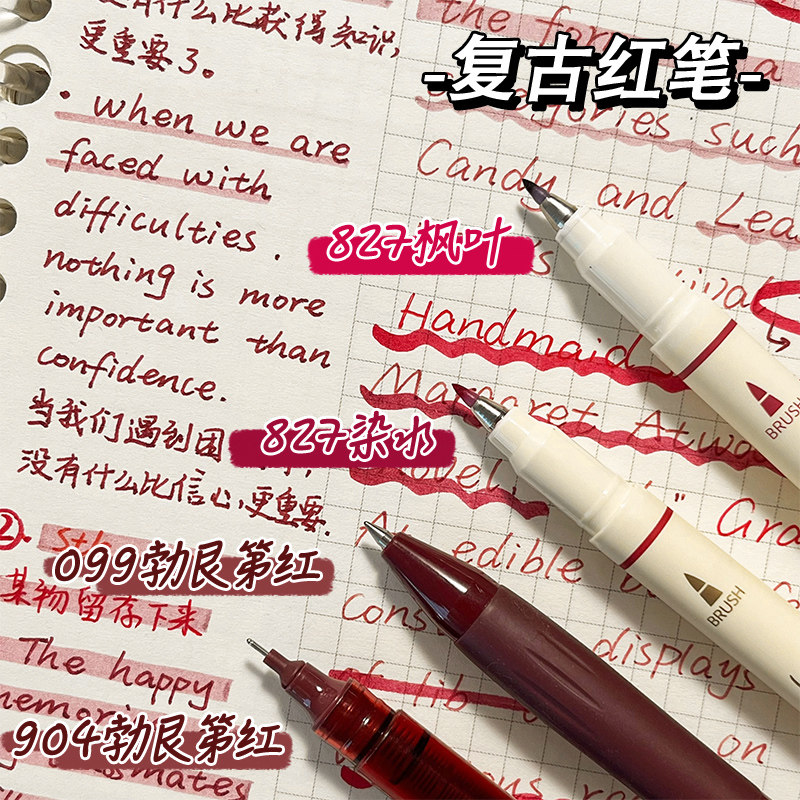 有什么比获得知识,
更重要了。
· when we are
faced with
difficulties.
nothing is more
important than
confidence.
当我们遇到困
没有什么比信心,更重要.
②. sth
某物留存下来
The happy
-复古红笔-
the for
categories such
Candy and Lea
Handmaid
Margaret Atwo
novel
Gra
An edible
cons
displays
of lib
on
827枫叶
827染水
099勃艮第红
904勃艮第红
BRUSH
BRUSH